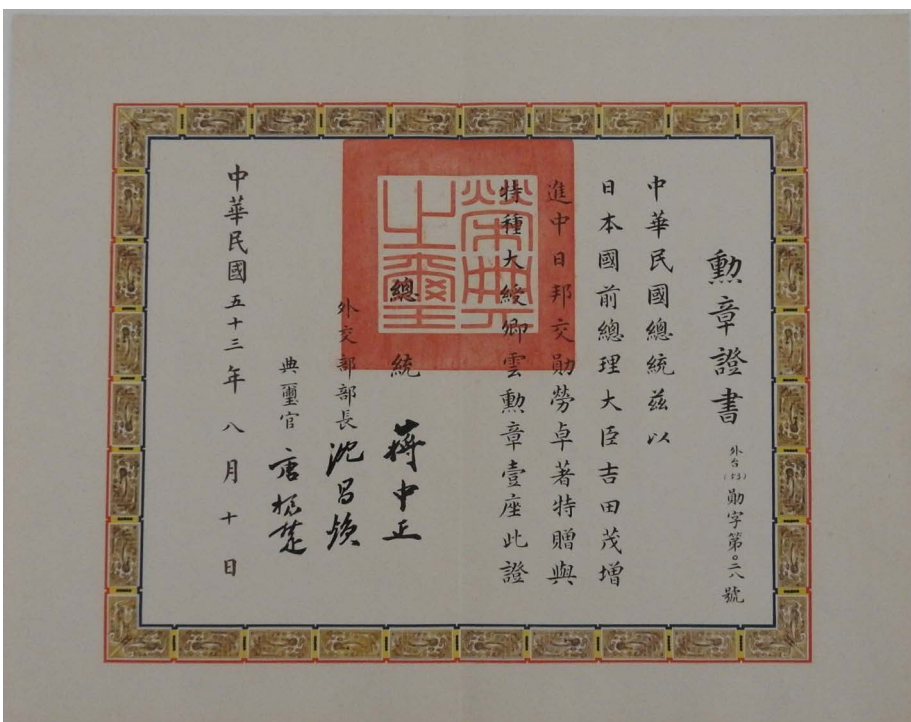 勲章證書
外台(53)勛字第〇二八號
中華民國總統茲以
日本國前總理大臣吉田茂增
進中日邦交勛勞卓著特贈與
特種大綬卿雲勲章壹座此證
總統 蔣中正
外交部部長 沈昌煥
典璽官 唐振楚
中華民國五十三年八月十日
榮典之璽